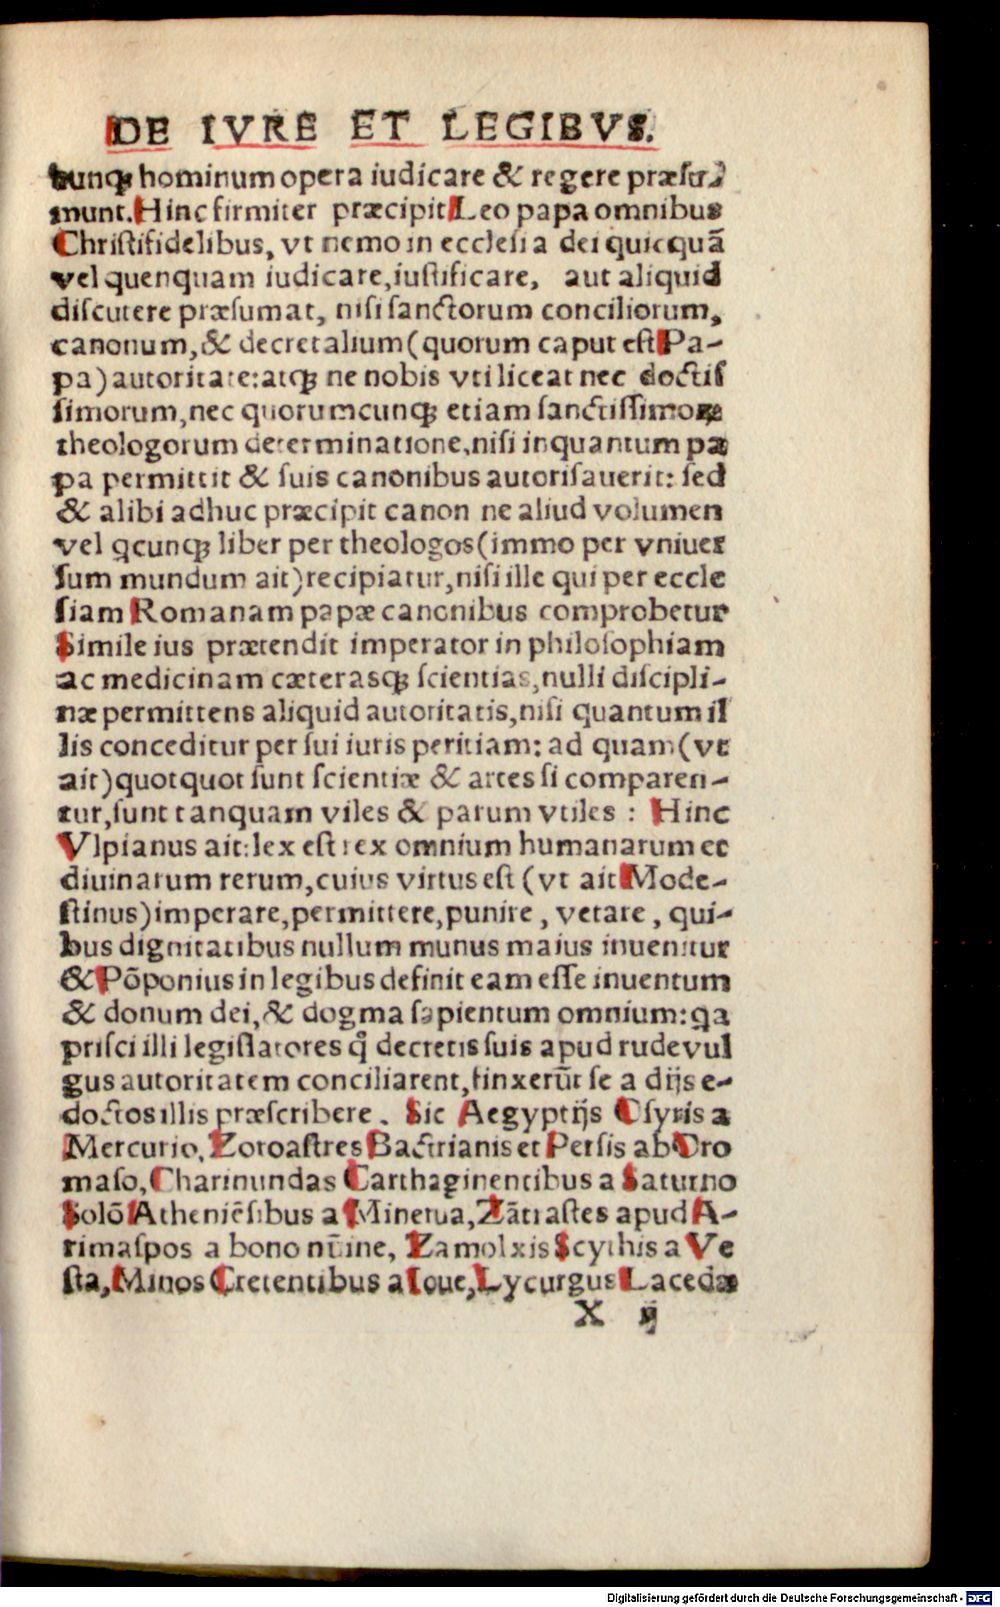 DE IVRE ET LEGIBVS.
bunqꝫ hominum opera iudicare & regere præsu
munt. Hinc firmiter præcipit Leo papa omnibus
Christifidelibus, vt nemo in ecclesia dei quicquã
vel quenquam iudicare, iustificare, aut aliquid
discutere præsumat, nisi sanctorum conciliorum,
canonum, & decretalium (quorum caput est Pa-
pa) autoritate: atqꝫ ne nobis vti liceat nec doctis
simorum, nec quorumcunqꝫ etiam sanctissimoꝝ
theologorum determinatione, nisi inquantum pa
pa permittit & suis canonibus autorisauerit: sed
& alibi adhuc præcipit canon ne aliud volumen
vel qcunqꝫ liber per theologos (immo per vniuer
sum mundum ait) recipiatur, nisi ille qui per eccle
siam Romanam papæ canonibus comprobetur
Simile ius prætendit imperator in philosophiam
ac medicinam cæterasqꝫ scientias, nulli discipli-
næ permittens aliquid autoritatis, nisi quantum il
lis conceditur per sui iuris peritiam: ad quam (vt
ait) quotquot sunt scientiæ & artes si comparen-
tur, sunt tanquam viles & parum vtiles : Hinc
Vlpianus ait: lex est rex omnium humanarum et
diuinarum rerum, cuius virtus est (vt ait Mode-
stinus) imperare, permittere, punire, vetare, qui-
bus dignitatibus nullum munus maius inuenitur
& Põponius in legibus definit eam esse inuentum
& donum dei, & dogma sapientum omnium: qa
prisci illi legislatores q̃ decretis suis apud rude vul
gus autoritatem conciliarent, finxerũt se a dijs e-
doctos illis præscribere. Sic Aegyptijs Osyris a
Mercurio, Zoroastres Bactrianis et Persis ab Oro
maso, Charinundas Carthaginentibus a Saturno
Solõ Atheniẽsibus a Minerua, Zãtrastes apud A-
rimaspos a bono nũine, Zamolxis Scythis a Ve
sta, Minos Cretentibus a Ioue, Lycurgus Lacedæ
X ij
Digitalisierung gefördert durch die Deutsche Forschungsgemeinschaft - DFG